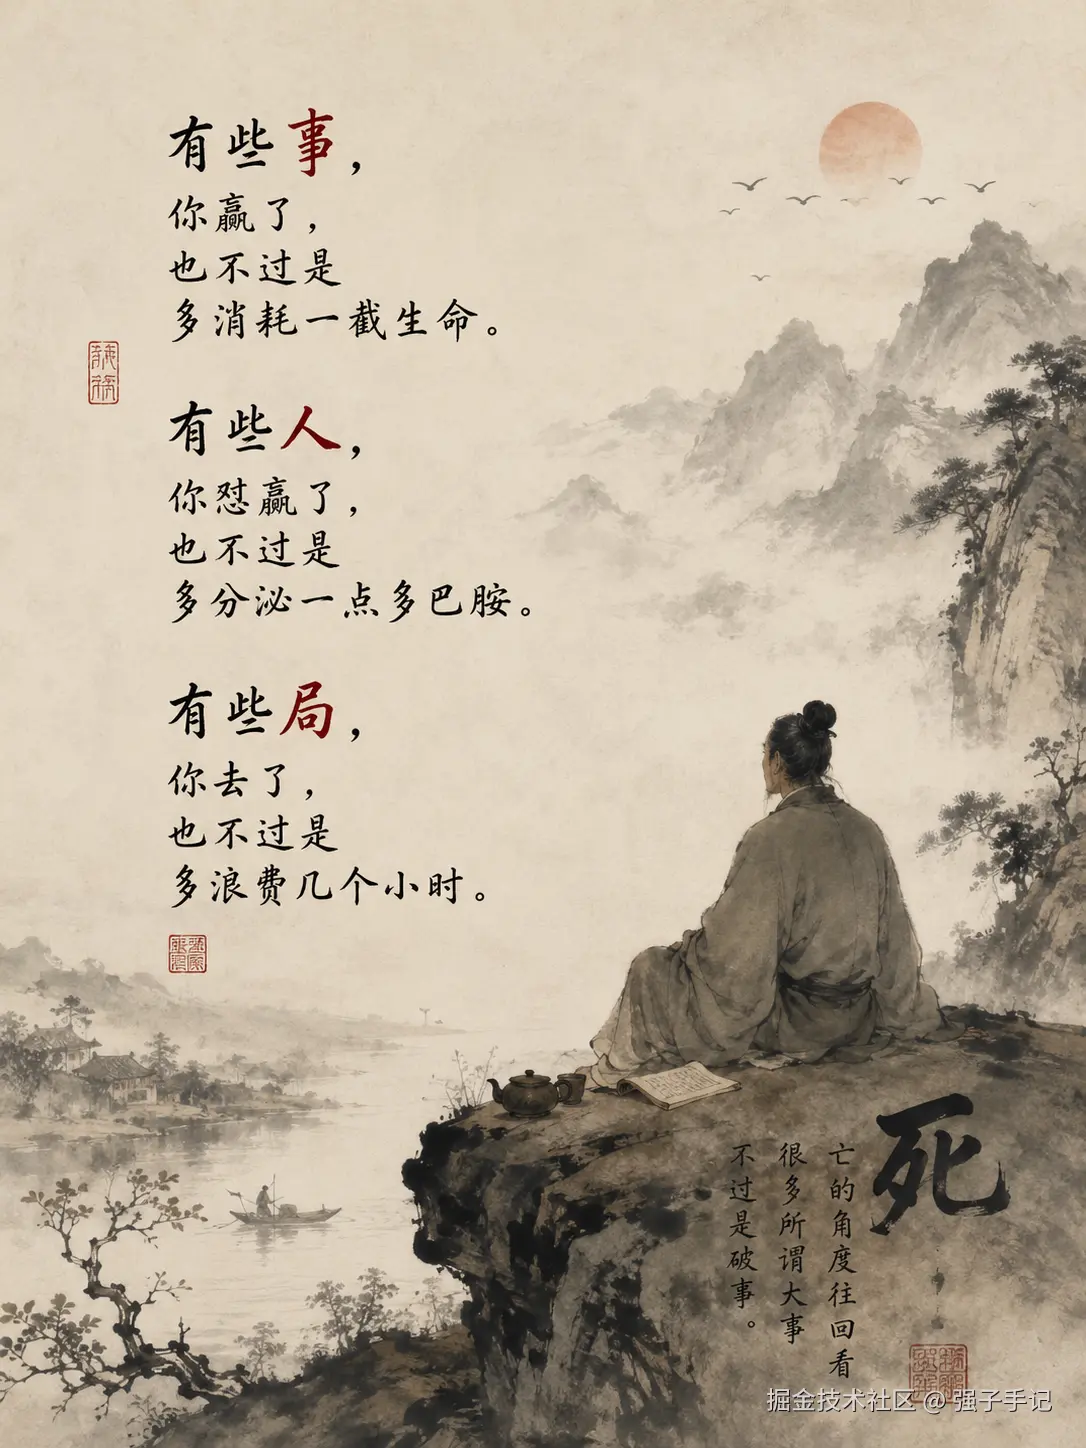 有些事，
你赢了，
也不过是
多消耗一截生命。
有些人，
你怼赢了，
也不过是
多分泌一点多巴胺。
有些局，
你去了，
也不过是
多浪费几个小时。
死
亡的角度往回看
很多所谓大事
不过是破事。
掘金技术社区 @ 强子手记